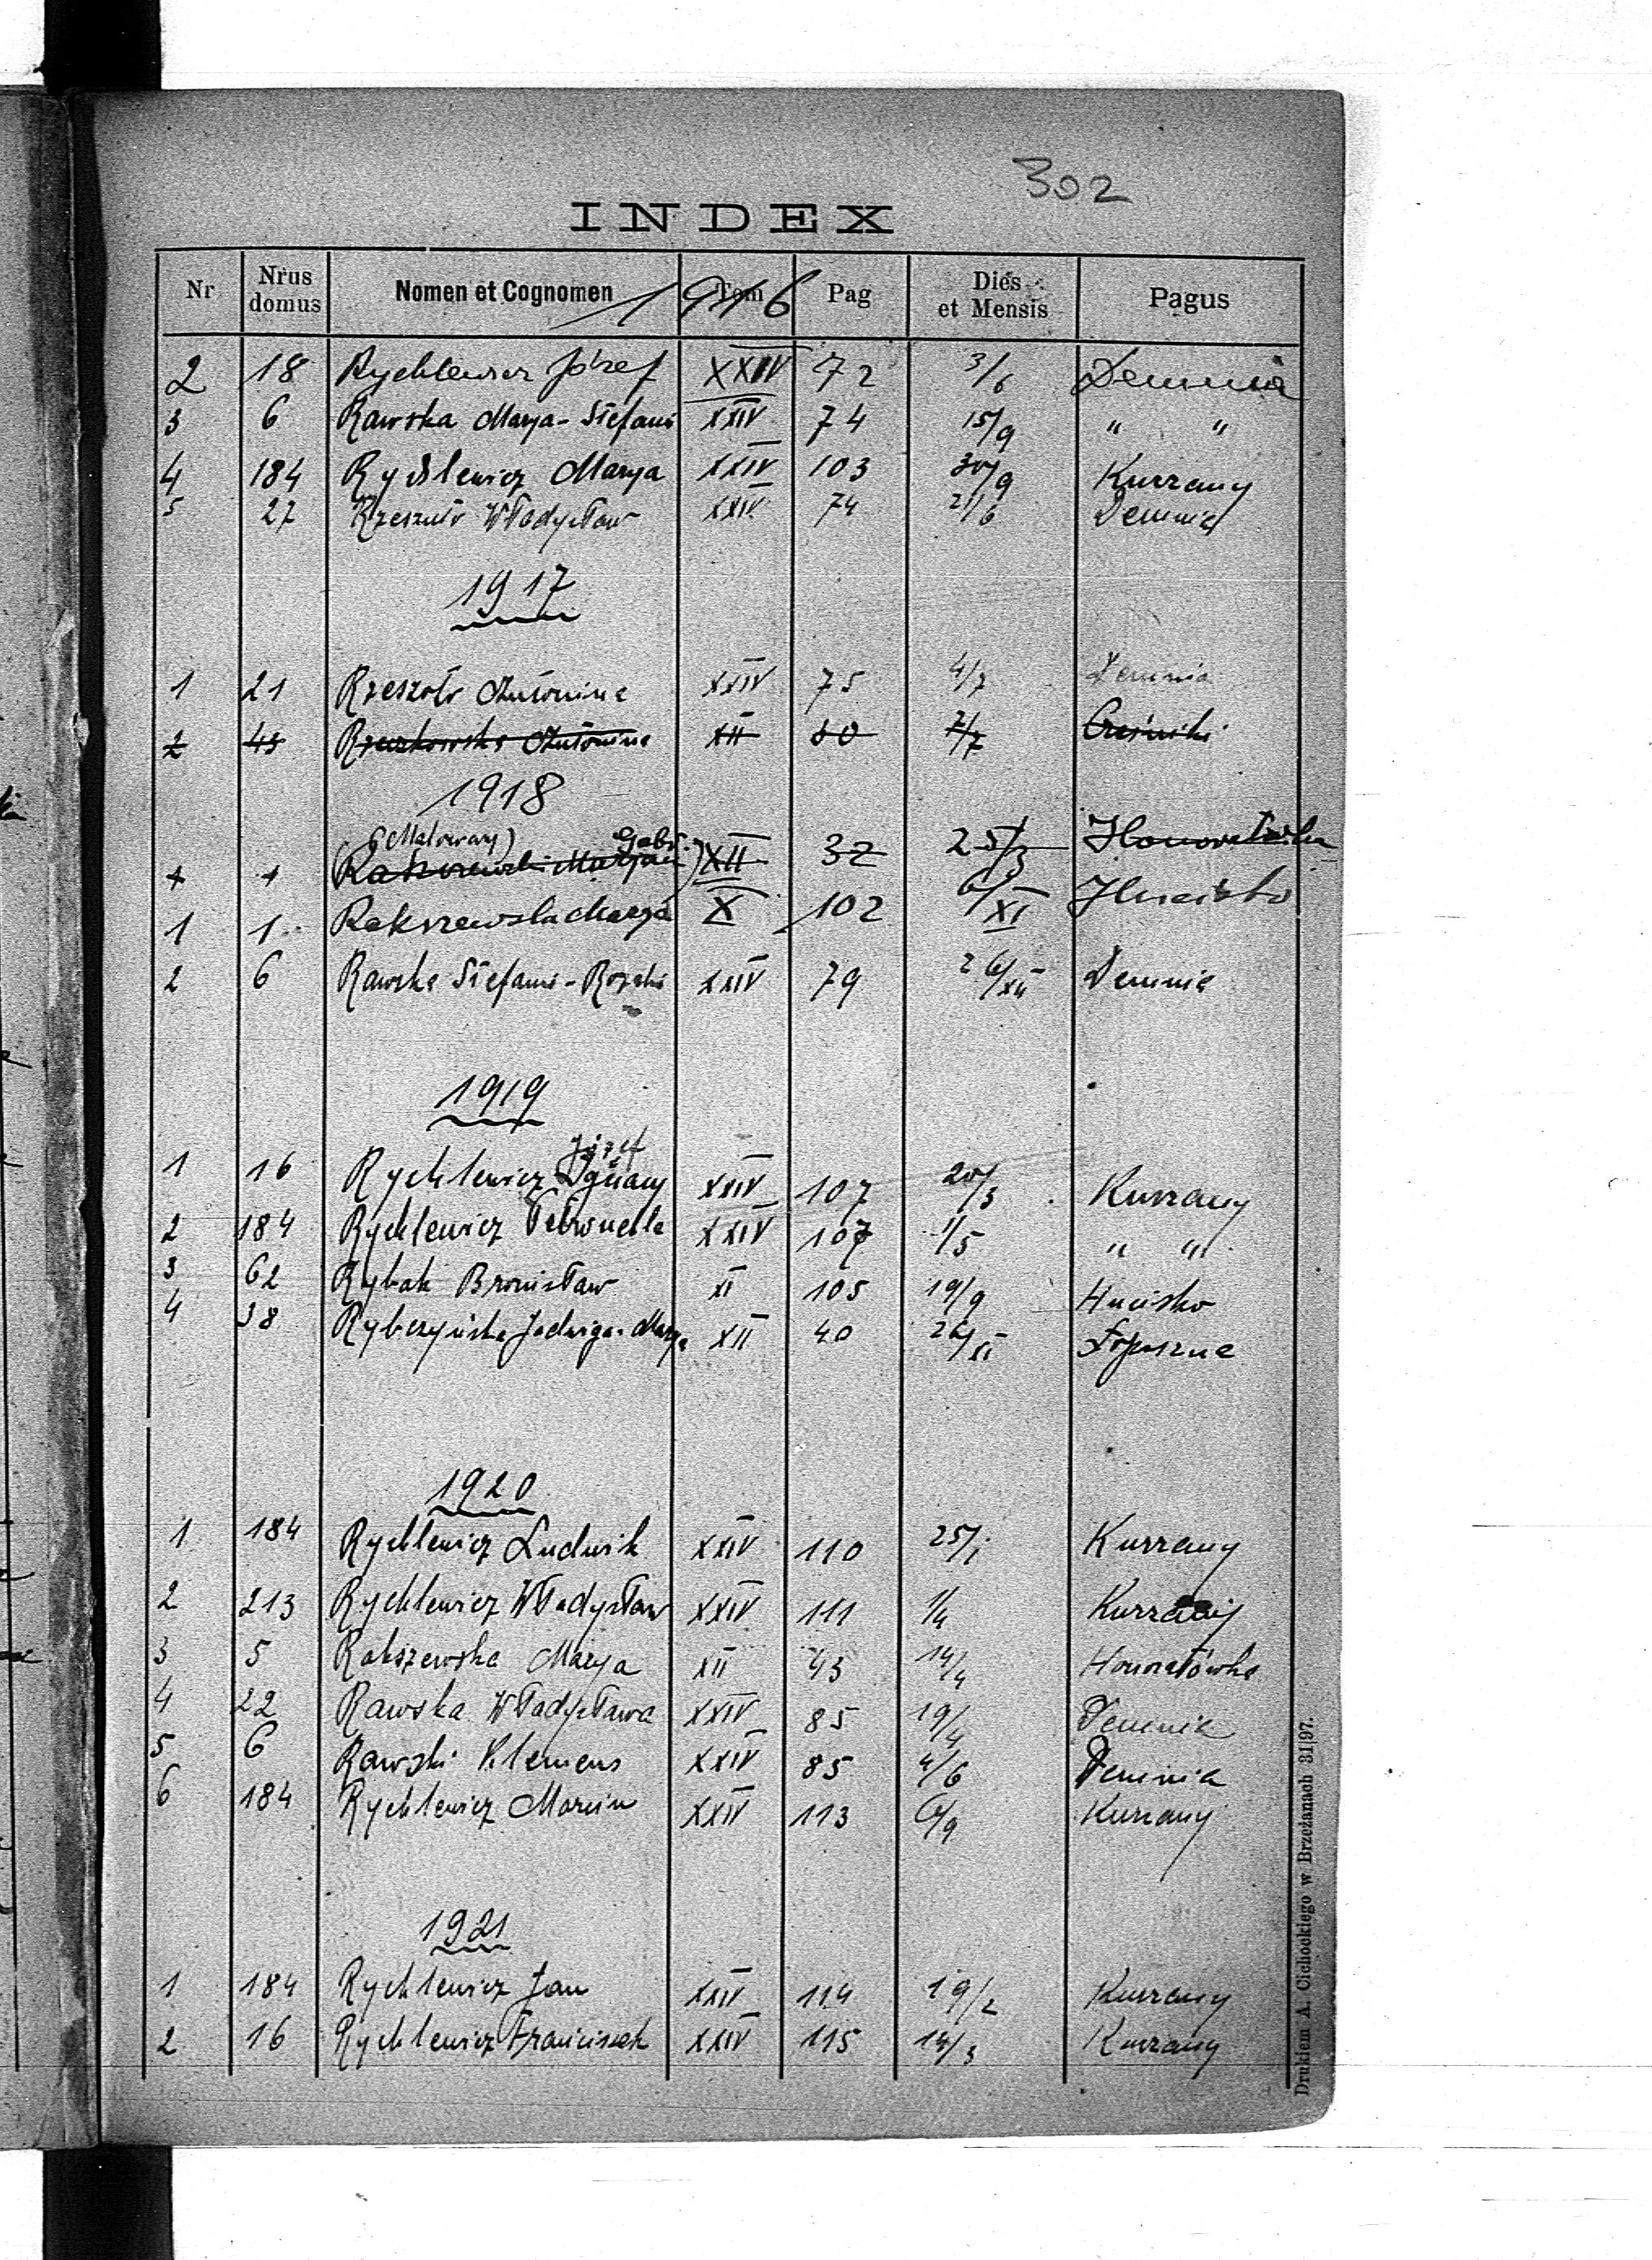 302
INDEX
Nr Nrus domus Nomen et Cognomen Tom Pag Dies et Mensis Pagus
1916
2 18 Rychlewicz Józef XXIV 72 3/6 Demnia
3 6 Rawska Marja-Stefani XXIV 74 15/9 " "
4 184 Rychlewicz Marya XXIV 103 30/9 Kurzany
5 27 Rzeszuto Władysław XXIV 74 21/6 Demnia
1917
1 21 Rzeszoto Antonina XXIV 75 4/7 Demnia
2 43 Rzurkowska Antonina XII 30 7/7
1918
(Malowany) Gabr.
1 1 Rakszewski Marjan) XII 32 25/3 Honoratówka
1 1 Rakszewska Marya X 102 6/XI Hucisko
2 6 Rawska Stefani-Rozalii XXIV 79 26/XII Demnia
1919
Józef
1 16 Rychlewicz Ignacy XXIV 107 20/3 Kurzany
2 184 Rychlewicz Petronella XXIV 107 1/5 " "
3 62 Rybak Bronisław XI 105 19/9 Hucisko
4 38 Rybczyńska Jadwiga-Marya XII 40 26/XI Łopuszna
1920
1 184 Rychlewicz Ludwik XXIV 110 25/i Kurzany
2 213 Rychlewicz Władysław XXIV 111 1/4 Kurzany
3 5 Rakszewska Marya XII 43 14/4 Honoratówka
4 22 Rawska Władysława XXIV 85 19/4 Demnia
5 6 Rawski Klemens XXIV 85 4/6 Demnia
6 184 Rychlewicz Marcin XXIV 113 6/9 Kurzany
1921
1 184 Rychlewicz Jan XXIV 114 19/2 Kurzany
2 16 Rychlewicz Franciszek XXIV 115 14/3 Kurzany
Drukiem A. Cichockiego w Brzeżanach 31|97.